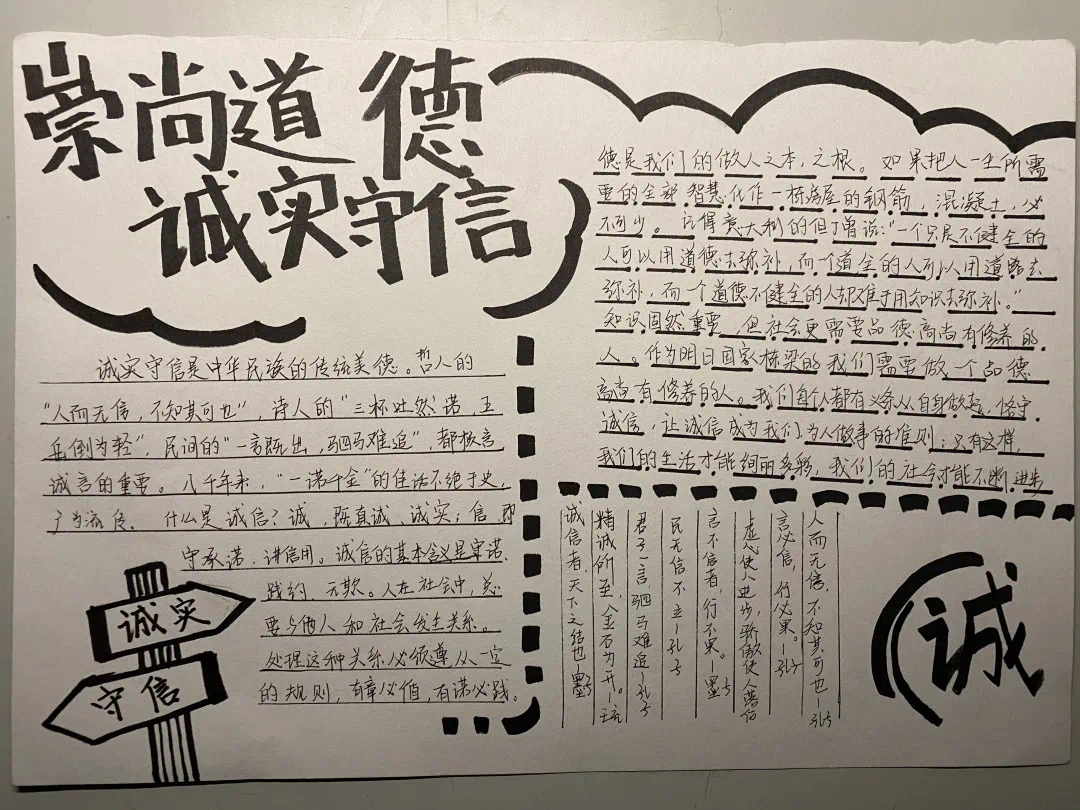 崇尚道德
诚实守信
诚实守信是中华民族的传统美德。哲人的
“人而无信，不知其可也”，诗人的“三杯吐然诺，五
岳倒为轻”，民间的“一言既出，驷马难追”，都极言
诚言的重要。八千年来，“一诺千金”的佳话不绝于史，
广为流传。什么是诚信？诚，既真诚、诚实；信，即
守承诺、讲信用。诚信的基本含义是守诺、
践约、无欺。人在社会中，总
要与他人和社会发生关系。
处理这种关系必须遵从一定
的规则，有章必值，有诺必践。
诚实
守信
德是我们的做人之本，之根。如果把人一生所需
要的全部智慧化作一栋房屋的钢筋，混凝土，必
不可少。记得意大利的但丁曾说：“一个只是不健全的
人可以用道德去弥补，而一个道全的人可以用道路去
弥补，而一个道德不健全的人却难于用知识去弥补。”
知识固然重要，但社会更需要品德高尚有修养的
人。作为明日国家栋梁的我们需要做一个品德
高尚有修养的人。我们每个人都有义务从自身做起，恪守
诚信，让诚信成为我们为人做事的准则；只有这样，
我们的生活才能绚丽多彩，我们的社会才能不断进步
人而无信，不知其可也—孔子
言必信，行必果。—孔子
虚心使人进步，骄傲使人落后
言不信者，行不果。—墨子
民无信不立—孔子
君子一言驷马难追—孔子
精诚所至，金石为开。—王充
诚信者，天下之结也—墨子
诚